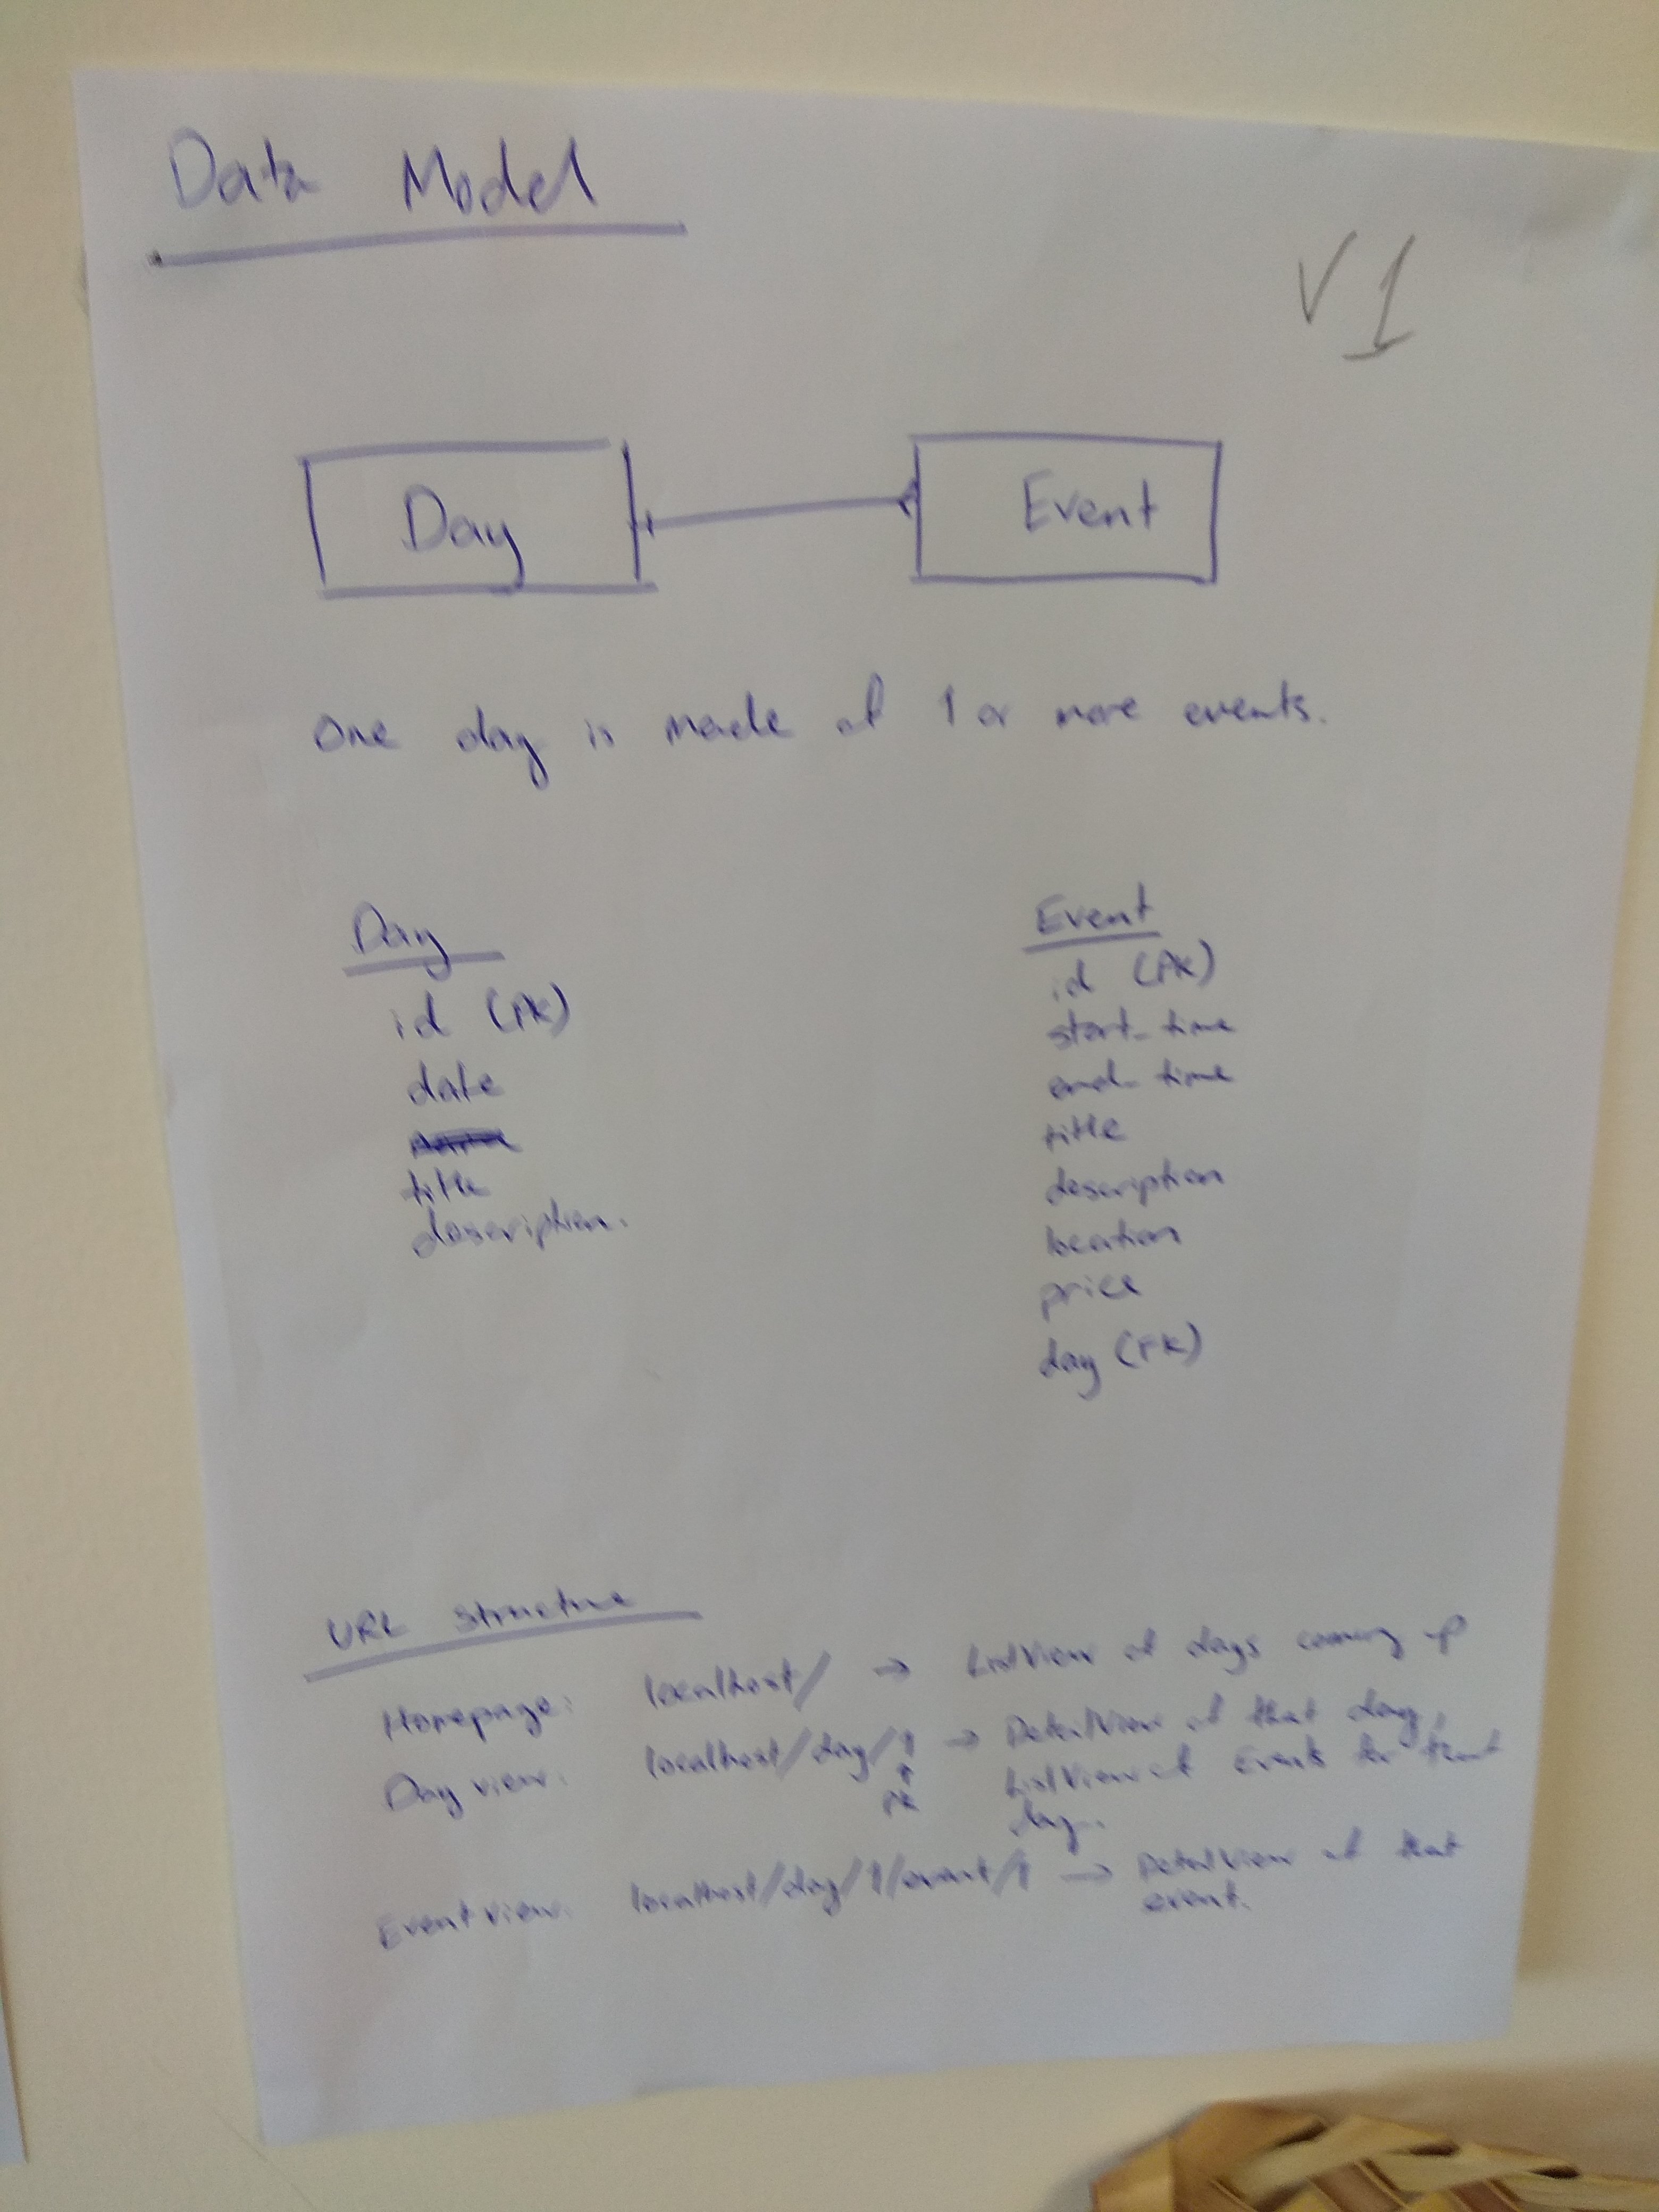 Data Model
V1
Day
Event
One day is made of 1 or more events.
Day
id (PK)
date
title
description.
Event
id (PK)
start_time
end_time
title
description
location
price
day (FK)
URL structure
Homepage: localhost/ → ListView of days coming up
Day view: localhost/day/1 → DetailView of that day,
↑
PK
ListView of Events for that
day.
Event view: localhost/day/1/event/1 → DetailView of that
event.